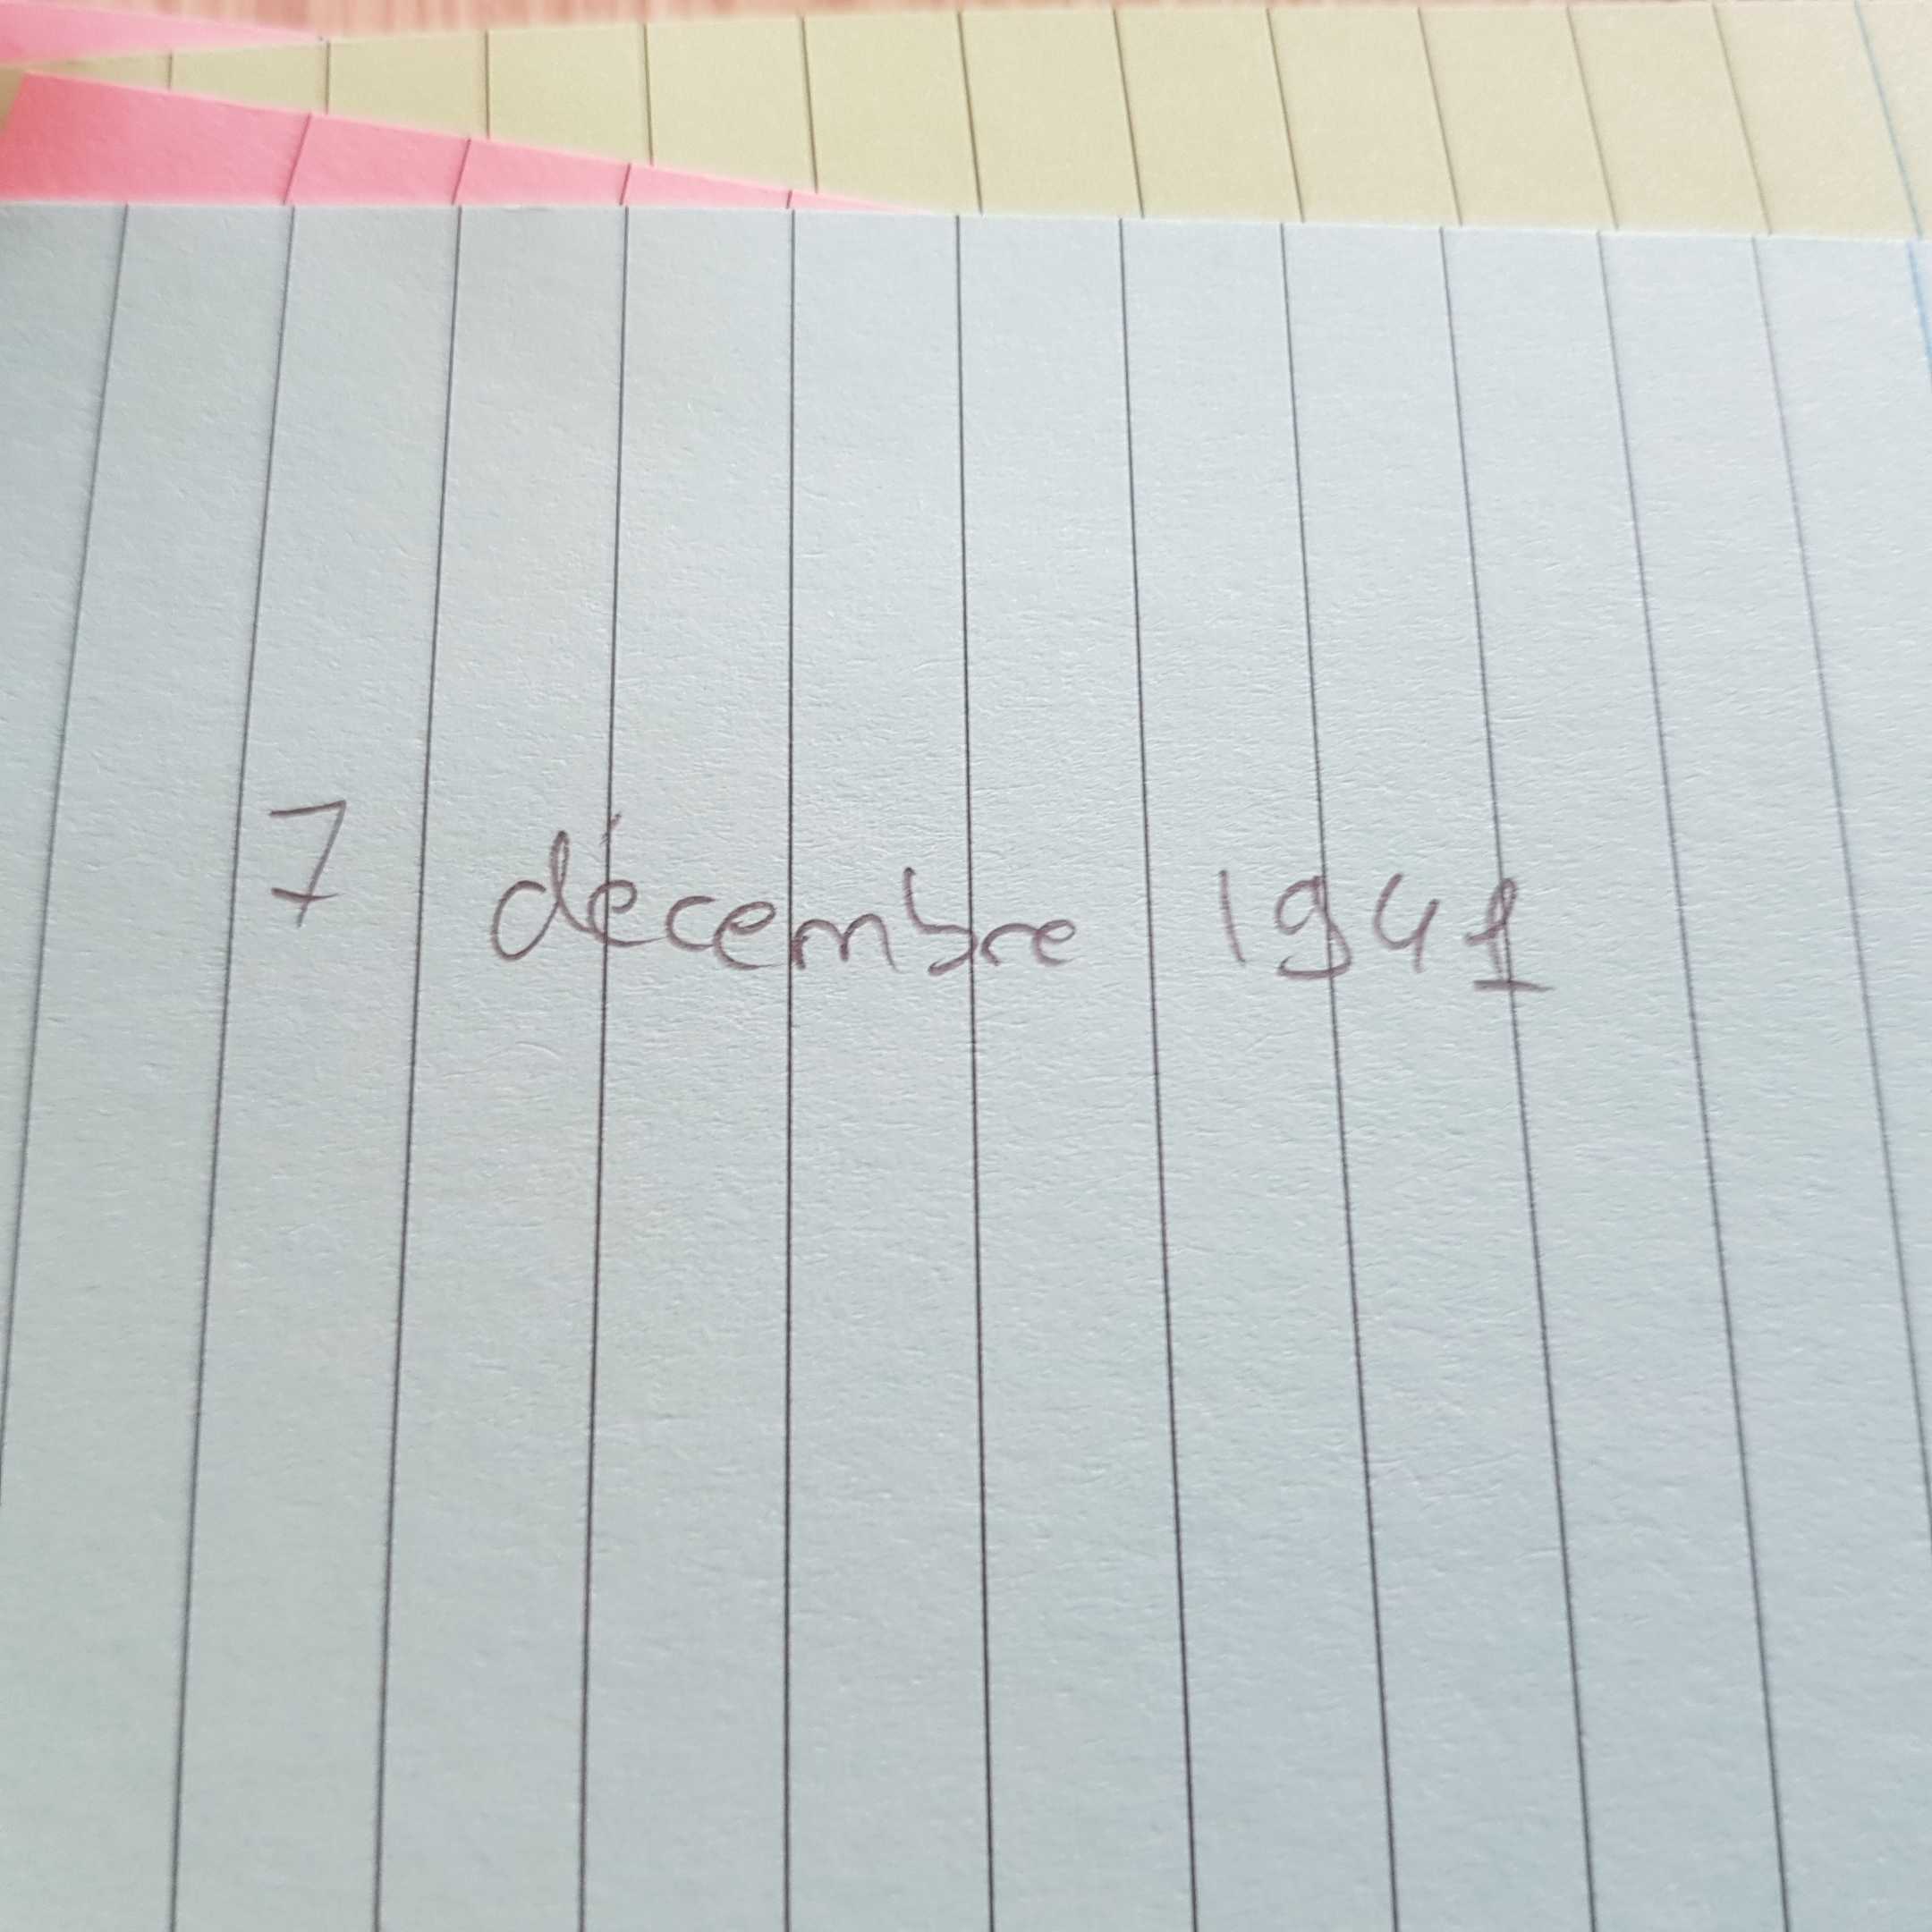 7 décembre 1941